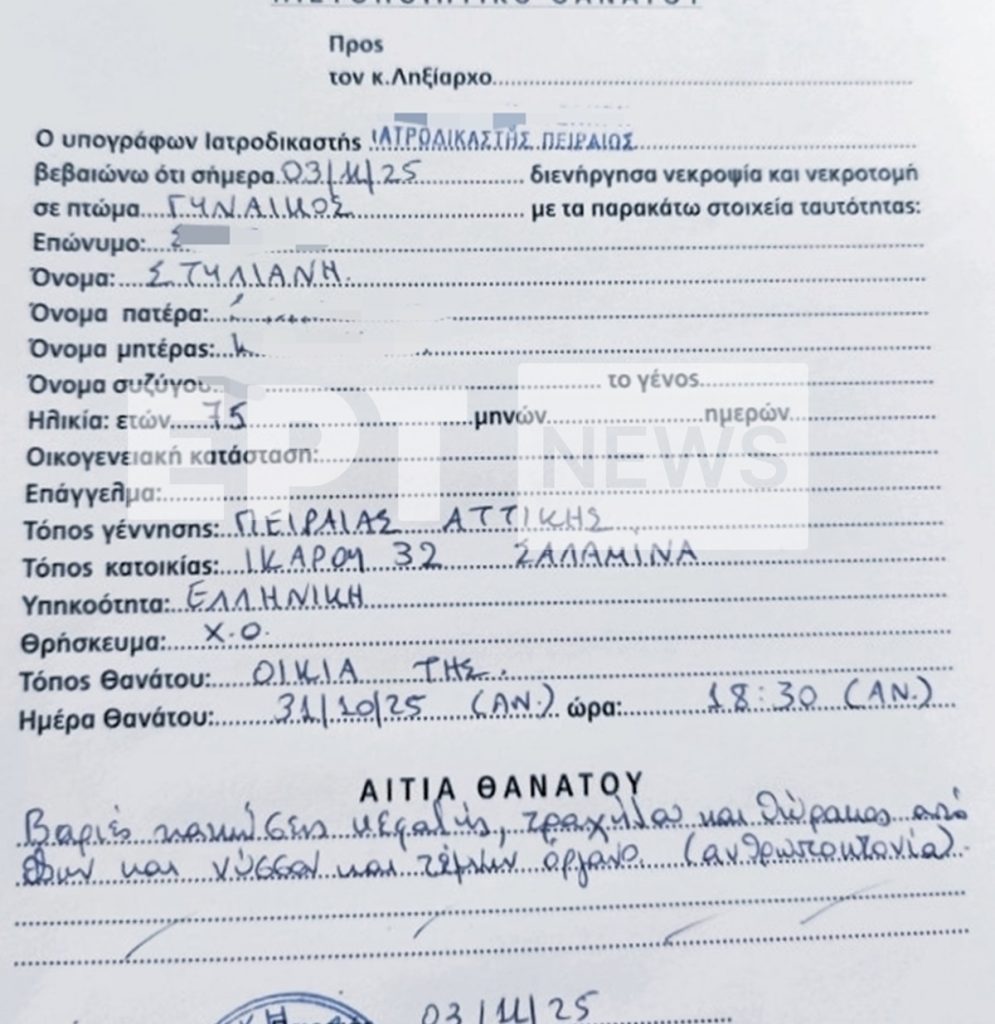 Προς
τον κ.Ληξίαρχο
Ο υπογράφων Ιατροδικαστής ΙΑΤΡΟΔΙΚΑΣΤΗΣ ΠΕΙΡΑΙΩΣ
βεβαιώνω ότι σήμερα 03/11/25 διενήργησα νεκροψία και νεκροτομή
σε πτώμα ΓΥΝΑΙΚΟΣ με τα παρακάτω στοιχεία ταυτότητας:
Επώνυμο: Σ
Όνομα: ΣΤΥΛΙΑΝΗ
Όνομα πατέρα:
Όνομα μητέρας:
Όνομα συζύγου το γένος
Ηλικία: ετών 75 μηνών ημερών
Οικογενειακή κατάσταση:
Επάγγελμα:
ΕΡΤ NEWS
Τόπος γέννησης: ΠΕΙΡΑΙΑΣ ΑΤΤΙΚΗΣ
Τόπος κατοικίας: ΙΚΑΡΟΥ 32 ΣΑΛΑΜΙΝΑ
Υπηκοότητα: ΕΛΛΗΝΙΚΗ
Θρήσκευμα: Χ.Ο.
Τόπος Θανάτου: ΟΙΚΙΑ ΤΗΣ.
Ημέρα Θανάτου: 31/10/25 (ΑΝ.) ώρα: 18:30 (ΑΝ.)
ΑΙΤΙΑ ΘΑΝΑΤΟΥ
Βαριές κακώσεις κεφαλής, τραχήλου και θώρακος από
θλων και νύσσον και τέμνων όργανο. (ανθρωποκτονία).
03/11/25